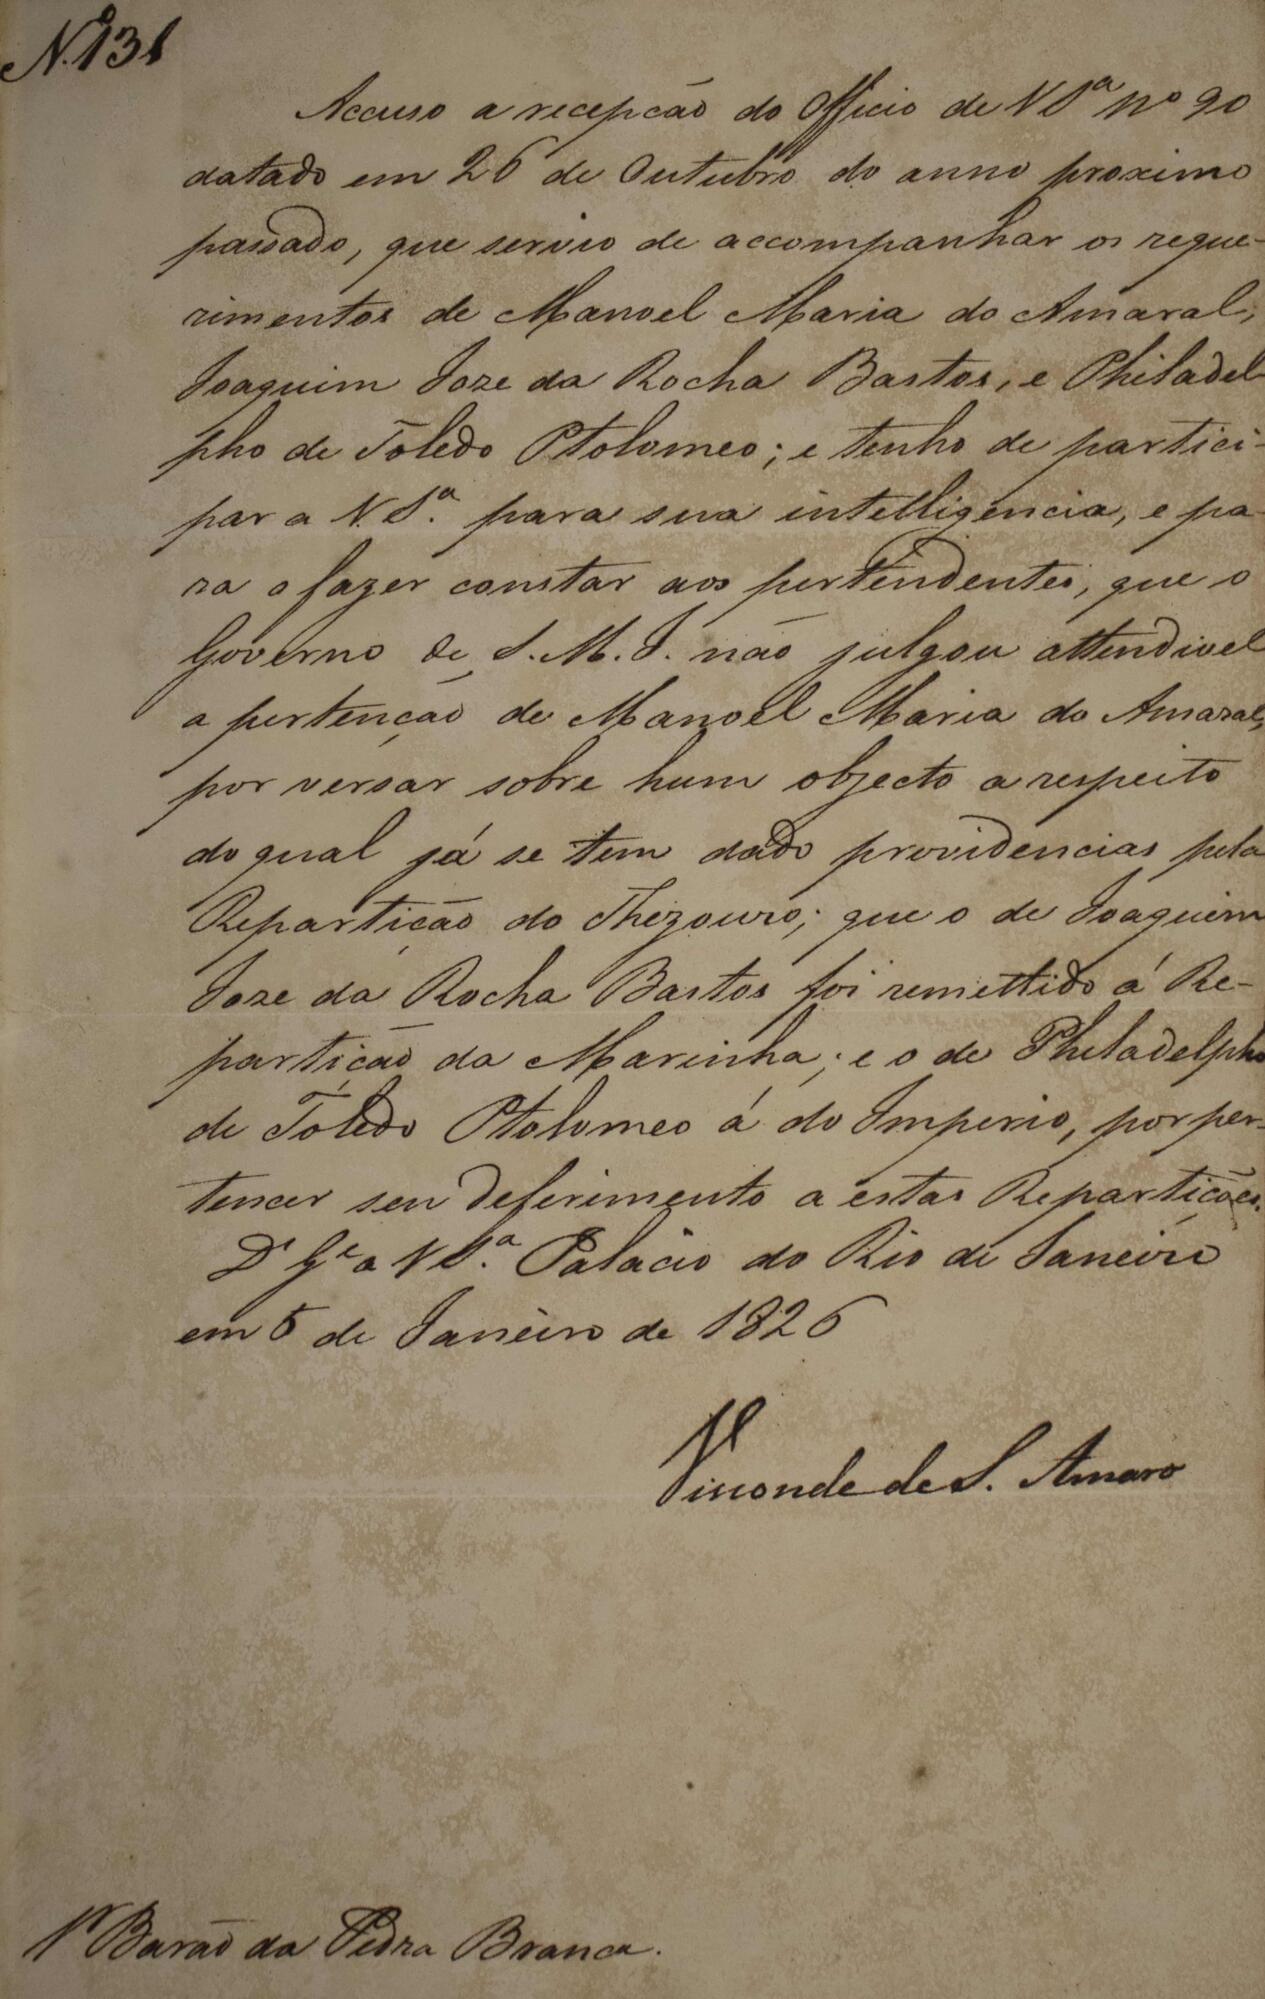 N.º 131
Accuso a recepção do Officio de V Sª nº 90
datado em 26 de Outubro do anno proximo
passado, que servio de accompanhar os reque-
rimentos de Manoel Maria do Amaral,
Joaquim Joze da Rocha Bastos, e Philadel-
pho de Toledo Ptolomeo; e tenho de partici-
par a V. Sª. para sua intelligencia, e pa-
ra o fazer constar aos pertendentes, que o
Governo de S. M. I. não julgou attendivel
a pertenção de Manoel Maria do Amaral,
por versar sobre hum objecto a respeito
do qual já se tem dado providencias pela
Repartição do Thezouro; que o de Joaquim
Joze da Rocha Bastos foi remettido á Re-
partição da Marinha; e o de Philadelpho
de Toledo Ptolomeo á do Imperio, por per-
tencer seu deferimento a estas Repartições.
Ds Ge a V Sª. Palacio do Rio de Janeiro
em 5 de Janeiro de 1826
Visconde de S. Amaro
Sr Barão da Pedra Branca.